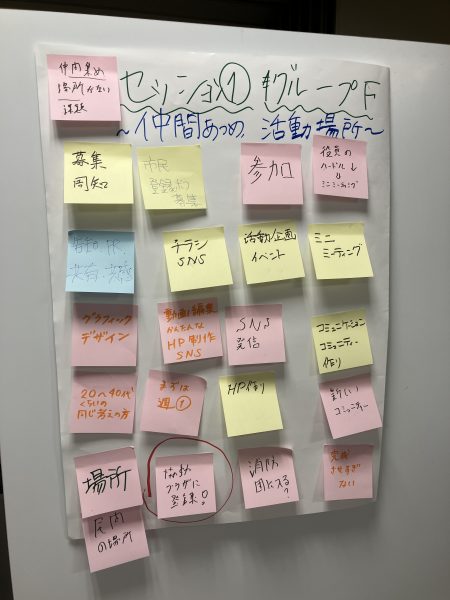 仲間集め
場所がない
課題
セッション① グループF
~仲間あつめ、活動場所~
募集
周知
市民
登録的
募集
参加
役員の
ハードル↓
ミニミーティング
共有・共感
チラシ
SNS
活動企画
イベント
ミニ
ミーティング
グラフィック
デザイン
動画編集
かんたんな
HP制作
SNS
SNS
発信
コミュニケーション
コミュニティー
作り
20〜40代
くらいの
同じ考えの方
まずは
週①
HP作り
新しい
コミュニティー
場所
民間
の場所
協働
プラザに
登録!
消防
団に入る?
完成
させすぎ
ない